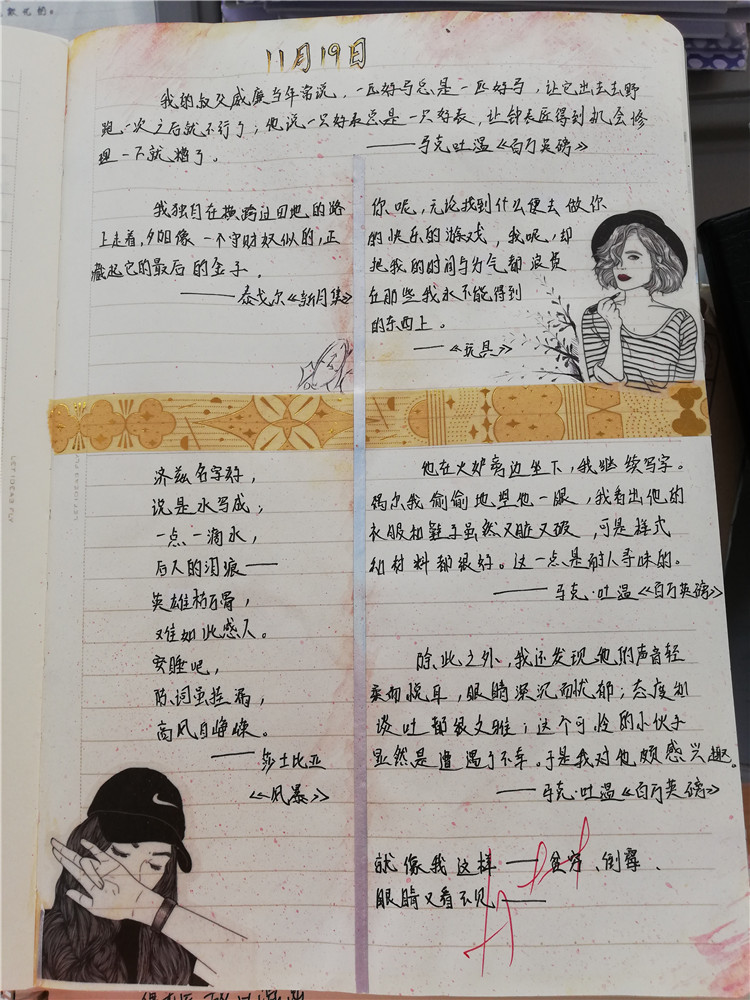 歉光的。
11月19日
我的叔父威廉当年常说，一匹好马总是一匹好马，让它出去去野
跑一次之后就不行了；他说一只好表总是一只好表，让钟表匠得到机会修
理一下就糟了。
——马克吐温《百万英磅》
我独自在横跨过田地的路
上走着，夕阳像一个守财奴似的，正
藏起它的最后的金子，
——泰戈尔《新月集》
你呢，无论找到什么便去做你
的快乐的游戏，我呢，却
把我的时间与力气都浪费
在那些我永不能得到
的东西上。
——《玩具》
济兹名字好，
说是水写成；
一点一滴水，
后人的泪痕——
英雄枯万骨，
难如此感人。
安睡吧，
陈词虽挂漏，
高风自峥嵘。
——莎士比亚
《风暴》
他在火炉旁边坐下，我继续写字。
偶尔我偷偷地望他一眼，我看出他的
衣服和鞋子虽然又脏又破，可是样式
和材料都很好。这一点是耐人寻味的。
——马克·吐温《百万英磅》
除此之外，我还发现他们声音轻
柔而悦耳，眼睛深沉而忧郁；态度和
谈吐都很文雅；这个可怜的小伙子
显然是遭遇了不幸。于是我对他颇感兴趣。
——马克·吐温《百万英磅》
就像我这样——贫穷、倒霉、
眼睛又看不见——
LET IDEAS FLY
LET IDEAS FLY